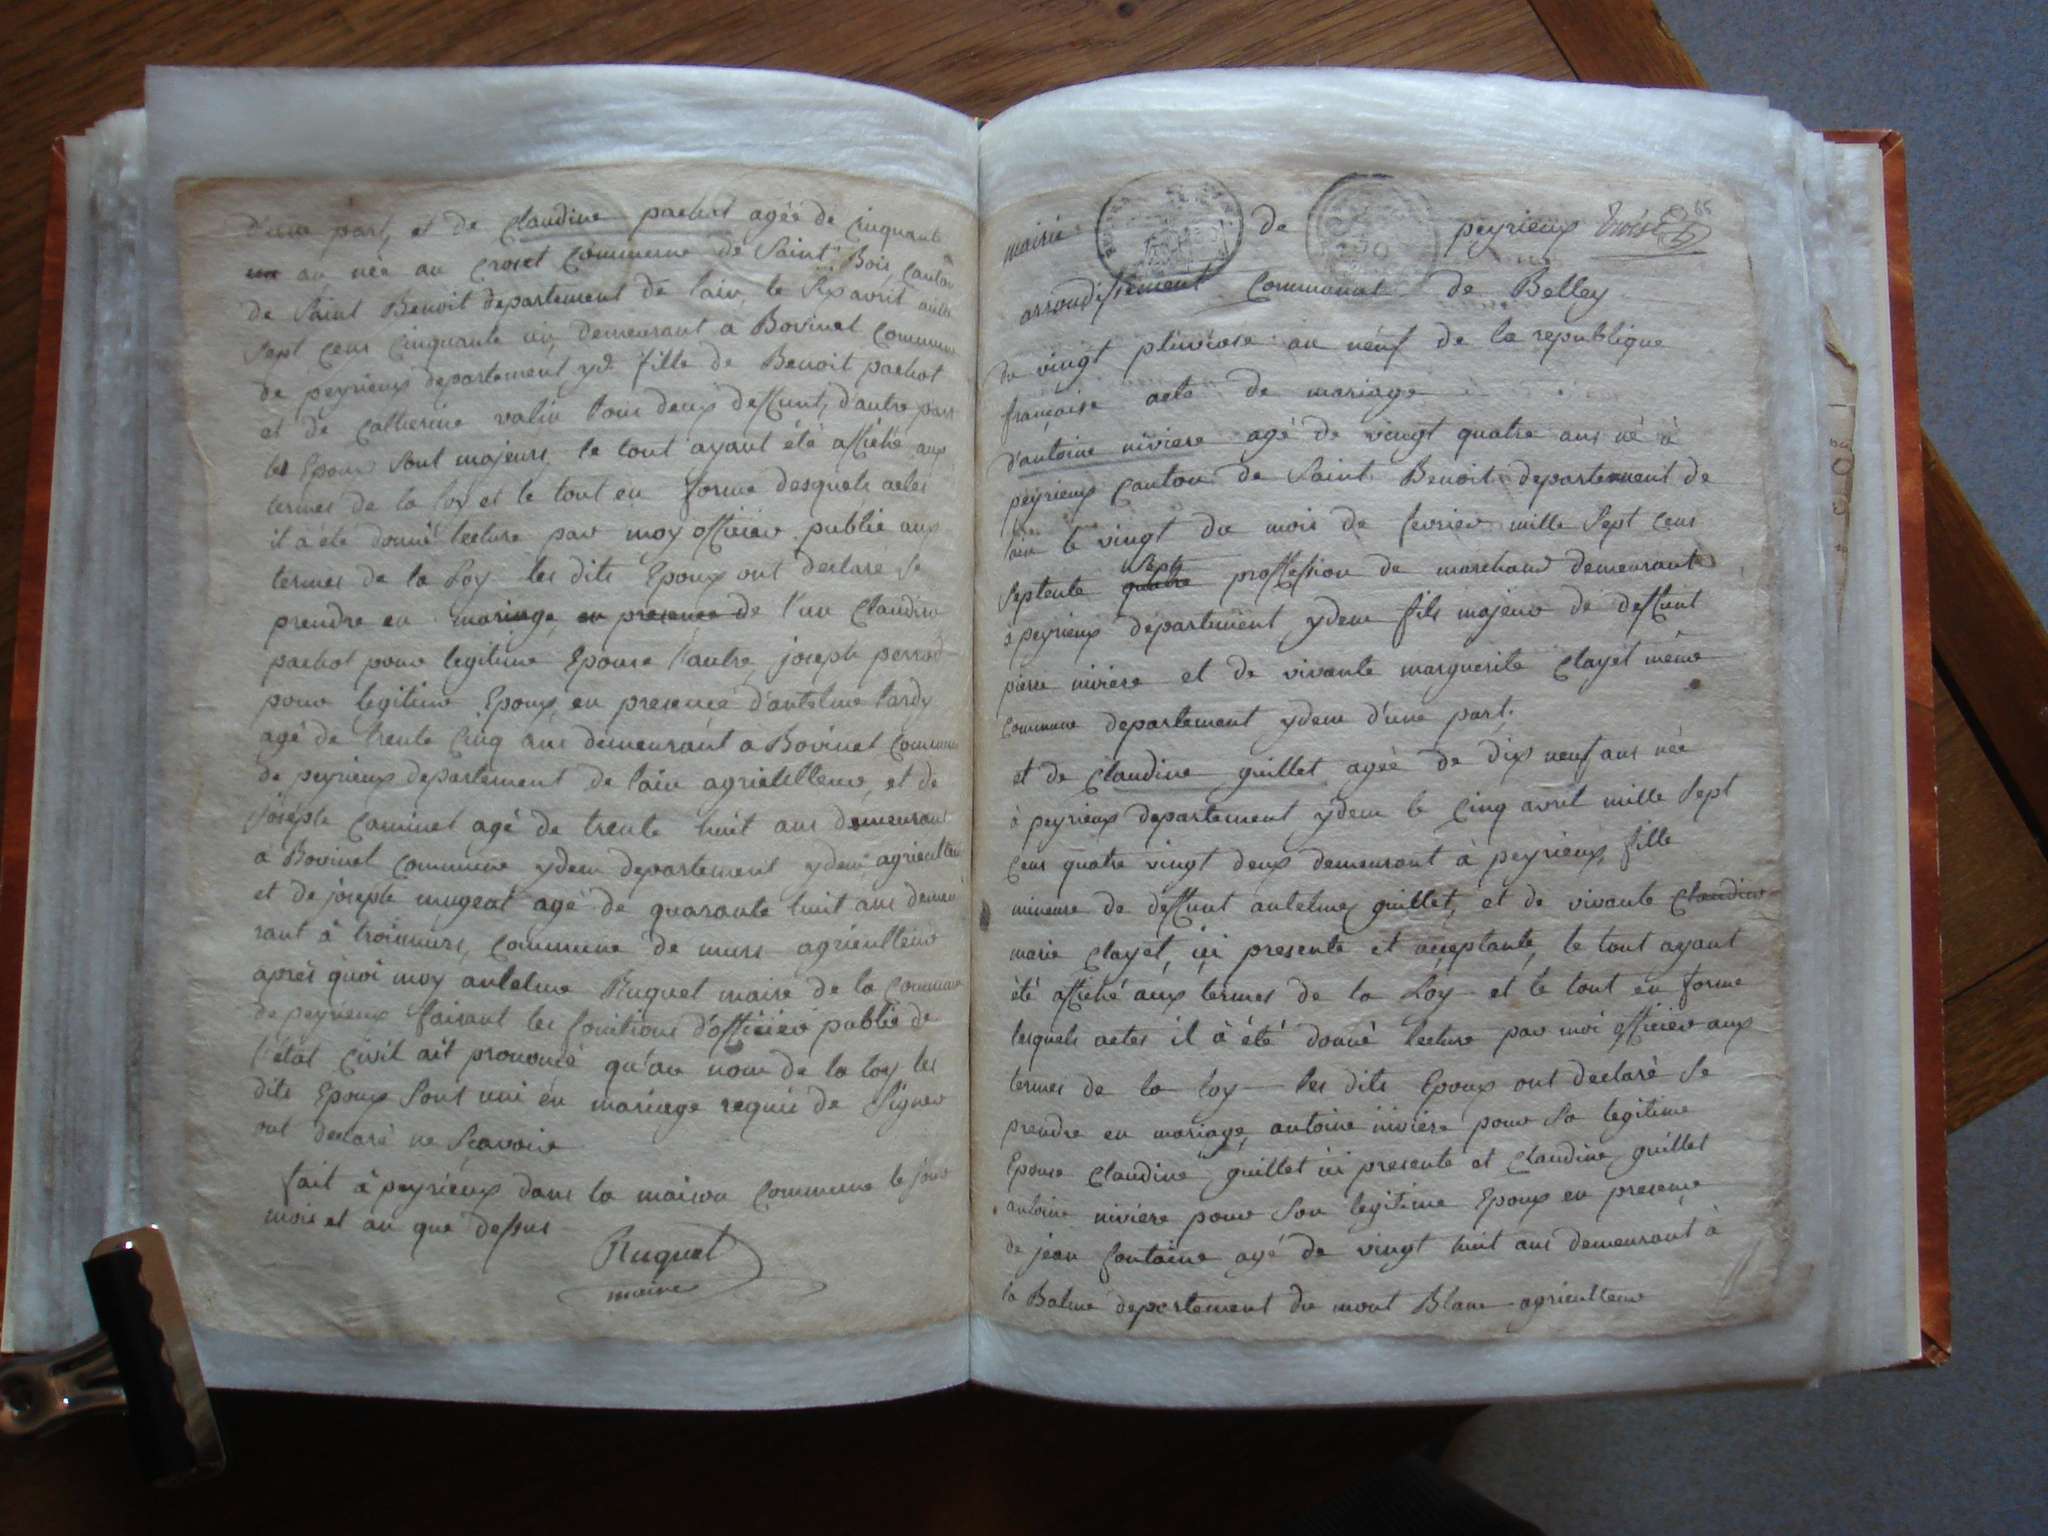 d'une part, et de Claudine pachot agée de Cinquante
un an née au Croset Commune de Saint Bois, Canton
de Saint Benoit departement de lain, le Six avril mille
Sept Cens Cinquante un, demeurant a Bovinel Commune
de peyrieux departement yd. fille de Benoit pachot
et de Catherine valin tous deux deffunt, d'autre part
les Epoux Sont majeurs le tout ayant été affiché aux
termes de la loy et le tout en forme desquels actes
il a été donné lecture par moy officier public aux
termes de la Loy les dits Epoux ont declaré Se
prendre en mariage, en presence de l'un Claudine
pachot pour legitime Epouse l'autre joseph perrod
pour legitime Epoux, en presence d'antelme tardy
agé de trente Cinq ans demeurant a Bovinel Commune
de peyrieux departement de lain agriculteur, et de
joseph Caminet agé de trente huit ans demeurant
a Bovinel Commune ydem departement ydem, agriculteur
et de joseph mugeat agé de quarante huit ans demeu
rant à troimurs, Commune de murs agriculteur
après quoi moy antelme Huguet maire de la Commune
de peyrieux faisant les fonctions d'officier public de
l'état Civil ait prononcé qu'au nom de la loy les
dits Epoux Sont uni en mariage requis de Signer
ont declaré ne Scavoir
fait à peyrieux dans la maison Commune le jour
mois et an que dessus
Huguet
maire
mairie de peyrieux 65
arrondissement Communal de Belley
du vingt pluviose an neuf de la republique
française acte de mariage
d'antoine niviere agé de vingt quatre ans né à
peyrieux Canton de Saint Benoit departement de
lain le vingt du mois de fevrier mille Sept Cens
Sept
Septente quatre proffession de marchand demeurant
à peyrieux departement ydem fils majeur de deffunt
pierre niviere et de vivante marguerite Clayet même
Commune departement ydem d'une part.
et de Claudine guillet agée de dix neuf ans née
à peyrieux departement ydem le Cinq avril mille Sept
Cens quatre vingt deux demeurant à peyrieux, fille
mineure de deffunt antelme guillet, et de vivante Claudine
marie Clayet, içi presente et acceptante, le tout ayant
été affiché aux termes de la Loy et le tout en forme
lesquels actes il à été donné lecture par moi officier aux
termes de la loy les dits Epoux ont declaré Se
prendre en mariage, antoine niviere pour Sa legitime
Epouse Claudine guillet ici presente et Claudine guillet
antoine niviere pour Son legitime Epoux en presence
de jean fontaine agé de vingt huit ans demeurant à
la Balme departement du mont Blanc agriculteur